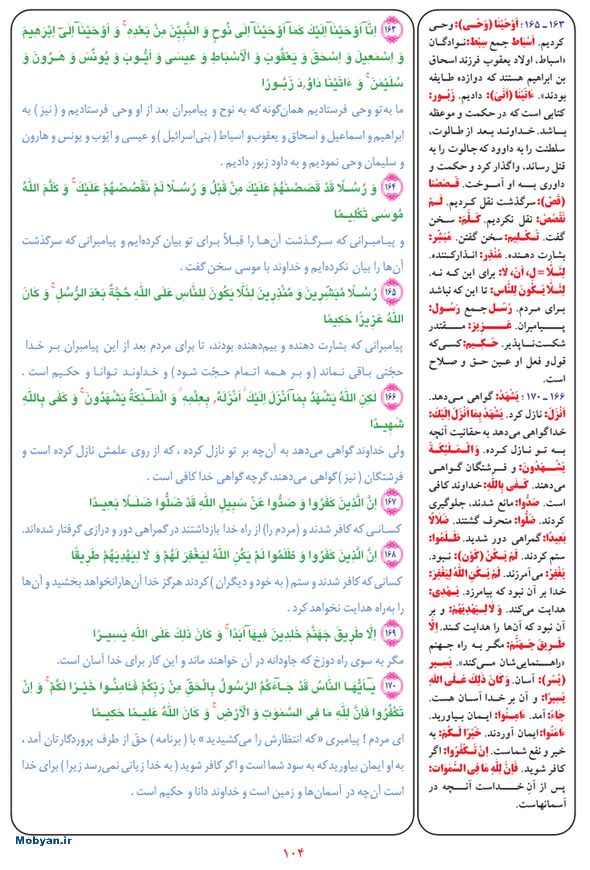 ۱۶۳ - ۱۶۵: اَوْحَيْنا (وَحْی): وحی
کردیم. اَسْباط جمع سِبْط: نوادگان
«اسباط، اولاد یعقوب فرزند اسحاق
بن ابراهیم هستند که دوازده طایفه
بودند». ءاتَيْنا (اَتْی): دادیم. زَبُور:
کتابی است که در حکمت و موعظه
باشد. خداوند بعد از طالوت،
سلطنت را به داوود که جالوت را به
قتل رساند، واگذار کرد و حکمت و
داوری به او آموخت. قَصَصْنا
(قَصّ): سرگذشت نقل کردیم. لَمْ
نَقْصُصْ: نقل نکردیم. کَلَّمَ: سخن
گفت. تَکْلِیم: سخن گفتن. مُبَشِّر:
بشارت دهنده. مُنْذِر: انذارکننده.
لِئَلّا = لِ، اَن، لا: برای این که نه.
لِئَلّا یَکُونَ لِلنّاسِ: تا این که نباشد
برای مردم. رُسُل جمع رَسُول:
پیامبران. عَزیز: مقتدر
شکست‌ناپذیر. حَکیم: کسی‌که
قول و فعل او عین حق و صلاح
است.
۱۶۶ - ۱۷۰: یَشْهَدُ: گواهی می‌دهد.
اَنْزَلَ: نازل کرد. یَشْهَدُ بِما اَنْزَلَ اِلَیْكَ:
خدا گواهی می‌دهد به حقانیت آنچه
به تو نازل کرد. وَ الْمَلٰئِکَةُ
یَشْهَدُونَ: و فرشتگان گواهی
می‌دهند. کَفیٰ بِاللهِ: خداوند کافی
است. صَدُّوا: مانع شدند، جلوگیری
کردند. ضَلُّوا: منحرف گشتند. ضَلالًا
بَعیدًا: گمراهی دور شدید. ظَلَمُوا:
ستم کردند. لَمْ یَکُنْ (کَوْن): نبود.
یَغْفِرُ: می‌آمرزند. لَمْ یَکُنِ اللهُ لِیَغْفِرَ:
خدا بر آن نبود که بیامرزد. یَهْدی:
هدایت می‌کند. وَ لا لِیَهْدِیَهُمْ: و بر
آن نبود که آن‌ها را هدایت کند. اِلّا
طَریقَ جَهَنَّمَ: مگر به راه جهنم
«راهنمایی‌شان می‌کند». یَسیر
(یُسْر): آسان. وَ کانَ ذٰلِكَ عَلَی اللهِ
یَسیرًا: و آن بر خدا آسان هست.
جاءَ: آمد. ءامِنُوا: ایمان بیاورید.
ءامَنُوا: ایمان آوردند. خَیْرًا لَکُمْ: به
خیر و نفع شماست. اِنْ تَکْفُرُوا: اگر
کافر شوید. فَاِنَّ لِلّٰهِ ما فِی السَّمٰوٰاتِ:
پس از آن خداست آنچه در
آسمانهاست.
۱۶۳ اِنّا اَوْحَیْنا اِلَیْكَ کَما اَوْحَیْنا اِلیٰ نُوحٍ وَ النَّبِیّٖنَ مِنْ بَعْدِهٖ وَ اَوْحَیْنا اِلیٰ اِبْرٰهیمَ
وَ اِسْمٰعیلَ وَ اِسْحٰقَ وَ یَعْقُوبَ وَ الْاَسْباطِ وَ عیسیٰ وَ اَیُّوبَ وَ یُونُسَ وَ هٰرُونَ وَ
سُلَیْمٰنَ وَ ءاتَیْنا داوُۥدَ زَبُورًا
ما به‌تو وحی فرستادیم همان‌گونه که به نوح و پیامبران بعد از او وحی فرستادیم و ( نیز ) به
ابراهیم و اسماعیل و اسحاق و یعقوب و اسباط ( بنی‌اسرائیل ) و عیسی و ایّوب و یونس و هارون
و سلیمان وحی نمودیم و به داود زبور دادیم .
۱۶۴ وَ رُسُلًا قَدْ قَصَصْنٰهُمْ عَلَیْكَ مِنْ قَبْلُ وَ رُسُلًا لَمْ نَقْصُصْهُمْ عَلَیْكَ وَ کَلَّمَ اللهُ
مُوسیٰ تَکْلیمًا
و پیامبرانی که سرگذشت آن‌ها را قبلاً برای تو بیان کرده‌ایم و پیامبرانی که سرگذشت
آن‌ها را بیان نکرده‌ایم و خداوند با موسی سخن گفت .
۱۶۵ رُسُلًا مُبَشِّرینَ وَ مُنْذِرینَ لِئَلّا یَکُونَ لِلنّاسِ عَلَی اللهِ حُجَّةٌ بَعْدَ الرُّسُلِ وَ کانَ
اللهُ عَزیزًا حَکیمًا
پیامبرانی که بشارت دهنده و بیم‌دهنده بودند، تا برای مردم بعد از این پیامبران بر خدا
حجّتی باقی نماند ( و بر همه اتمام حجّت شود ) و خداوند توانا و حکیم است .
۱۶۶ لٰکِنِ اللهُ یَشْهَدُ بِما اَنْزَلَ اِلَیْكَ اَنْزَلَهُ بِعِلْمِهٖ وَ الْمَلٰئِکَةُ یَشْهَدُونَ وَ کَفیٰ بِاللهِ
شَهیدًا
ولی خداوند گواهی می‌دهد به آن‌چه بر تو نازل کرده ، که از روی علمش نازل کرده است و
فرشتگان ( نیز ) گواهی می‌دهند، گرچه گواهی خدا کافی است .
۱۶۷ اِنَّ الَّذینَ کَفَرُوا وَ صَدُّوا عَنْ سَبیلِ اللهِ قَدْ ضَلُّوا ضَلٰلًا بَعیدًا
کسانی که کافر شدند و (مردم را) از راه خدا بازداشتند در گمراهی دور و درازی گرفتار شده‌اند.
۱۶۸ اِنَّ الَّذینَ کَفَرُوا وَ ظَلَمُوا لَمْ یَکُنِ اللهُ لِیَغْفِرَ لَهُمْ وَ لا لِیَهْدِیَهُمْ طَریقًا
کسانی که کافر شدند و ستم ( به خود و دیگران ) کردند هرگز خدا آن‌ها را نخواهد بخشید و آن‌ها
را به‌راه هدایت نخواهد کرد .
۱۶۹ اِلّا طَریقَ جَهَنَّمَ خٰلِدینَ فیها اَبَدًا وَ کانَ ذٰلِكَ عَلَی اللهِ یَسیرًا
مگر به سوی راه دوزخ که جاودانه در آن خواهند ماند و این کار برای خدا آسان است.
۱۷۰ یٰاَیُّهَا النّاسُ قَدْ جاءَکُمُ الرَّسُولُ بِالْحَقِّ مِنْ رَبِّکُمْ فَـٔامِنُوا خَیْرًا لَکُمْ وَ اِنْ
تَکْفُرُوا فَاِنَّ لِلّٰهِ ما فِی السَّمٰوٰتِ وَ الْاَرْضِ وَ کانَ اللهُ عَلیمًا حَکیمًا
ای مردم ! پیامبری «که انتظارش را می‌کشیدید» با ( برنامه ) حقّ از طرف پروردگارتان آمد ،
به او ایمان بیاورید که به سود شما است و اگر کافر شوید ( به خدا زیانی نمی‌رسد زیرا ) برای خدا
است آن‌چه در آسمان‌ها و زمین است و خداوند دانا و حکیم است .
Mobyan.ir
۱۰۴